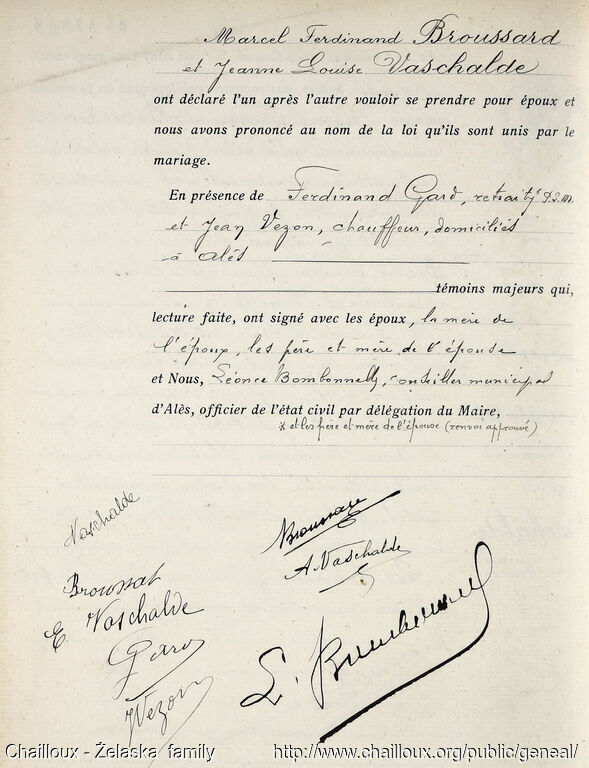 Marcel Ferdinand Broussard
et Jeanne Louise Vaschalde
ont déclaré l'un après l'autre vouloir se prendre pour époux et
nous avons prononcé au nom de la loi qu'ils sont unis par le
mariage.
En présence de Ferdinand Gard, retraité P.L.M.
et Jean Vezon, chauffeur, domiciliés
à Alès
témoins majeurs qui,
lecture faite, ont signé avec les époux, la mère de
l'époux, les père et mère de l'épouse
et Nous, Léonce Bombonnelly, conseiller municipal
d'Alès, officier de l'état civil par délégation du Maire,
* et les père et mère de l'épouse (renvoi approuvé)
Vaschalde
Broussard
A. Vaschalde
Broussat
E. Vaschalde
Gard
Vezon
L.
Chailloux - Żelaska family
http://www.chailloux.org/public/geneal/